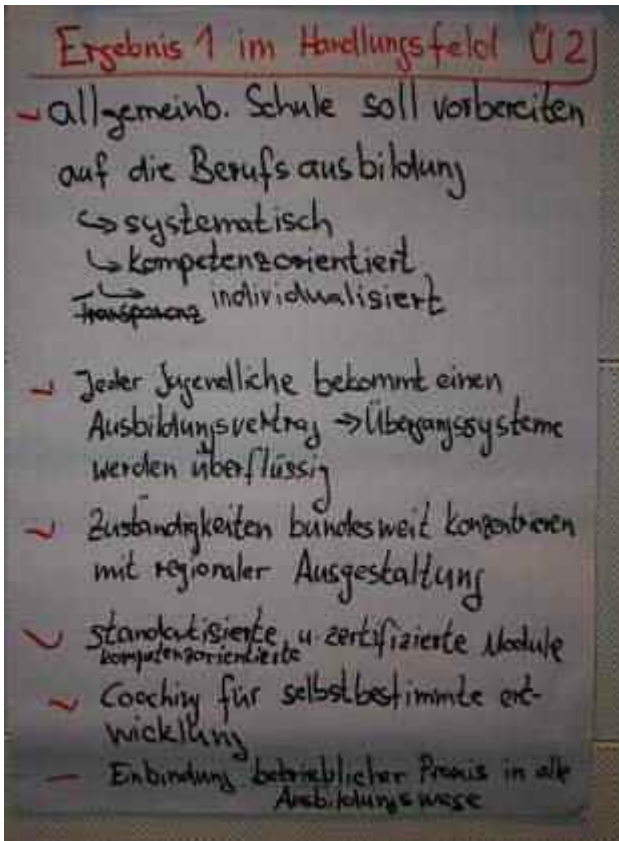 Ergebnis 1 im Handlungsfeld Ü2
- allgemeinb. Schule soll vorbereiten
auf die Berufsausbildung
↳ systematisch
↳ kompetenzorientiert
Transparenz ↳ individualisiert
- Jeder Jugendliche bekommt einen
Ausbildungsvertrag → Übergangssysteme
werden überflüssig
- Zuständigkeiten bundesweit konzentrieren
mit regionaler Ausgestaltung
- standatisierte u zertifizierte Module
kompetenzorientierte
- Coaching für selbstbestimmte ent-
wicklung
- Einbindung betrieblicher Praxis in alle
Ausbildungswege